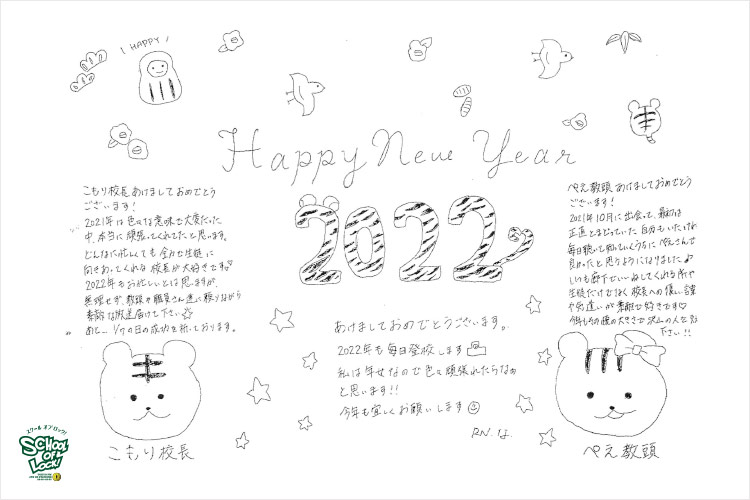 HAPPY
Happy New Year
2022
こもり校長あけましておめでとう
ございます!
2021年は色々な意味で大変だった
中、本当に頑張ってくれてたと思います。
どんなに忙しくても全力で生徒に
向きあってくれる校長が大好きです♡
2022年もお忙しいとは思いますが、
無理せず、教頭や職員さん達に頼りながら
素敵な放送届けて下さい☆
あと、1/7の日の成功を祈っております。
ぺえ教頭あけましておめでとう
ございます!
2021年10月に出会って、最初は
正直とまどっていた自分もいたけれど
毎日聴いて知っていくうちに ぺえさんで
良かったと思うようになりました♪
いつも廊下でい〜ねしてくれる所や
生徒だけでなく校長への優しい言葉
や気遣いが素敵で好きです♡
今年もその器の大きさで沢山の人を
下さい!!
あけましておめでとうございます。
2022年も毎日登校します
私は年女なので色々頑張れたらなぁ
と思います!!
今年も宜しくお願いします☺
RN. な
こもり校長
ぺえ教頭
スクール オブ ロック!
SCHOOL
OF
LOCK!